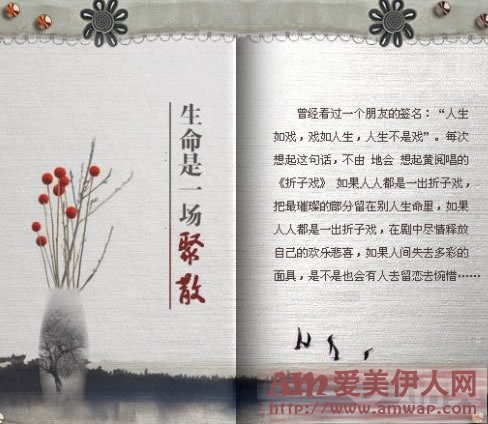 生命是一场
聚散
曾经看过一个朋友的签名：“人生
如戏，戏如人生，人生不是戏”。每次
想起这句话，不由 地会 想起黄阅唱的
《折子戏》 如果人人都是一出折子戏，
把最璀璨的部分留在别人生命里，如果
人人都是一出折子戏，在剧中尽情释放
自己的欢乐悲喜，如果人间失去多彩的
面具，是不是也会有人去留恋去惋惜……
am爱美伊人网
http://www.amwap.com/